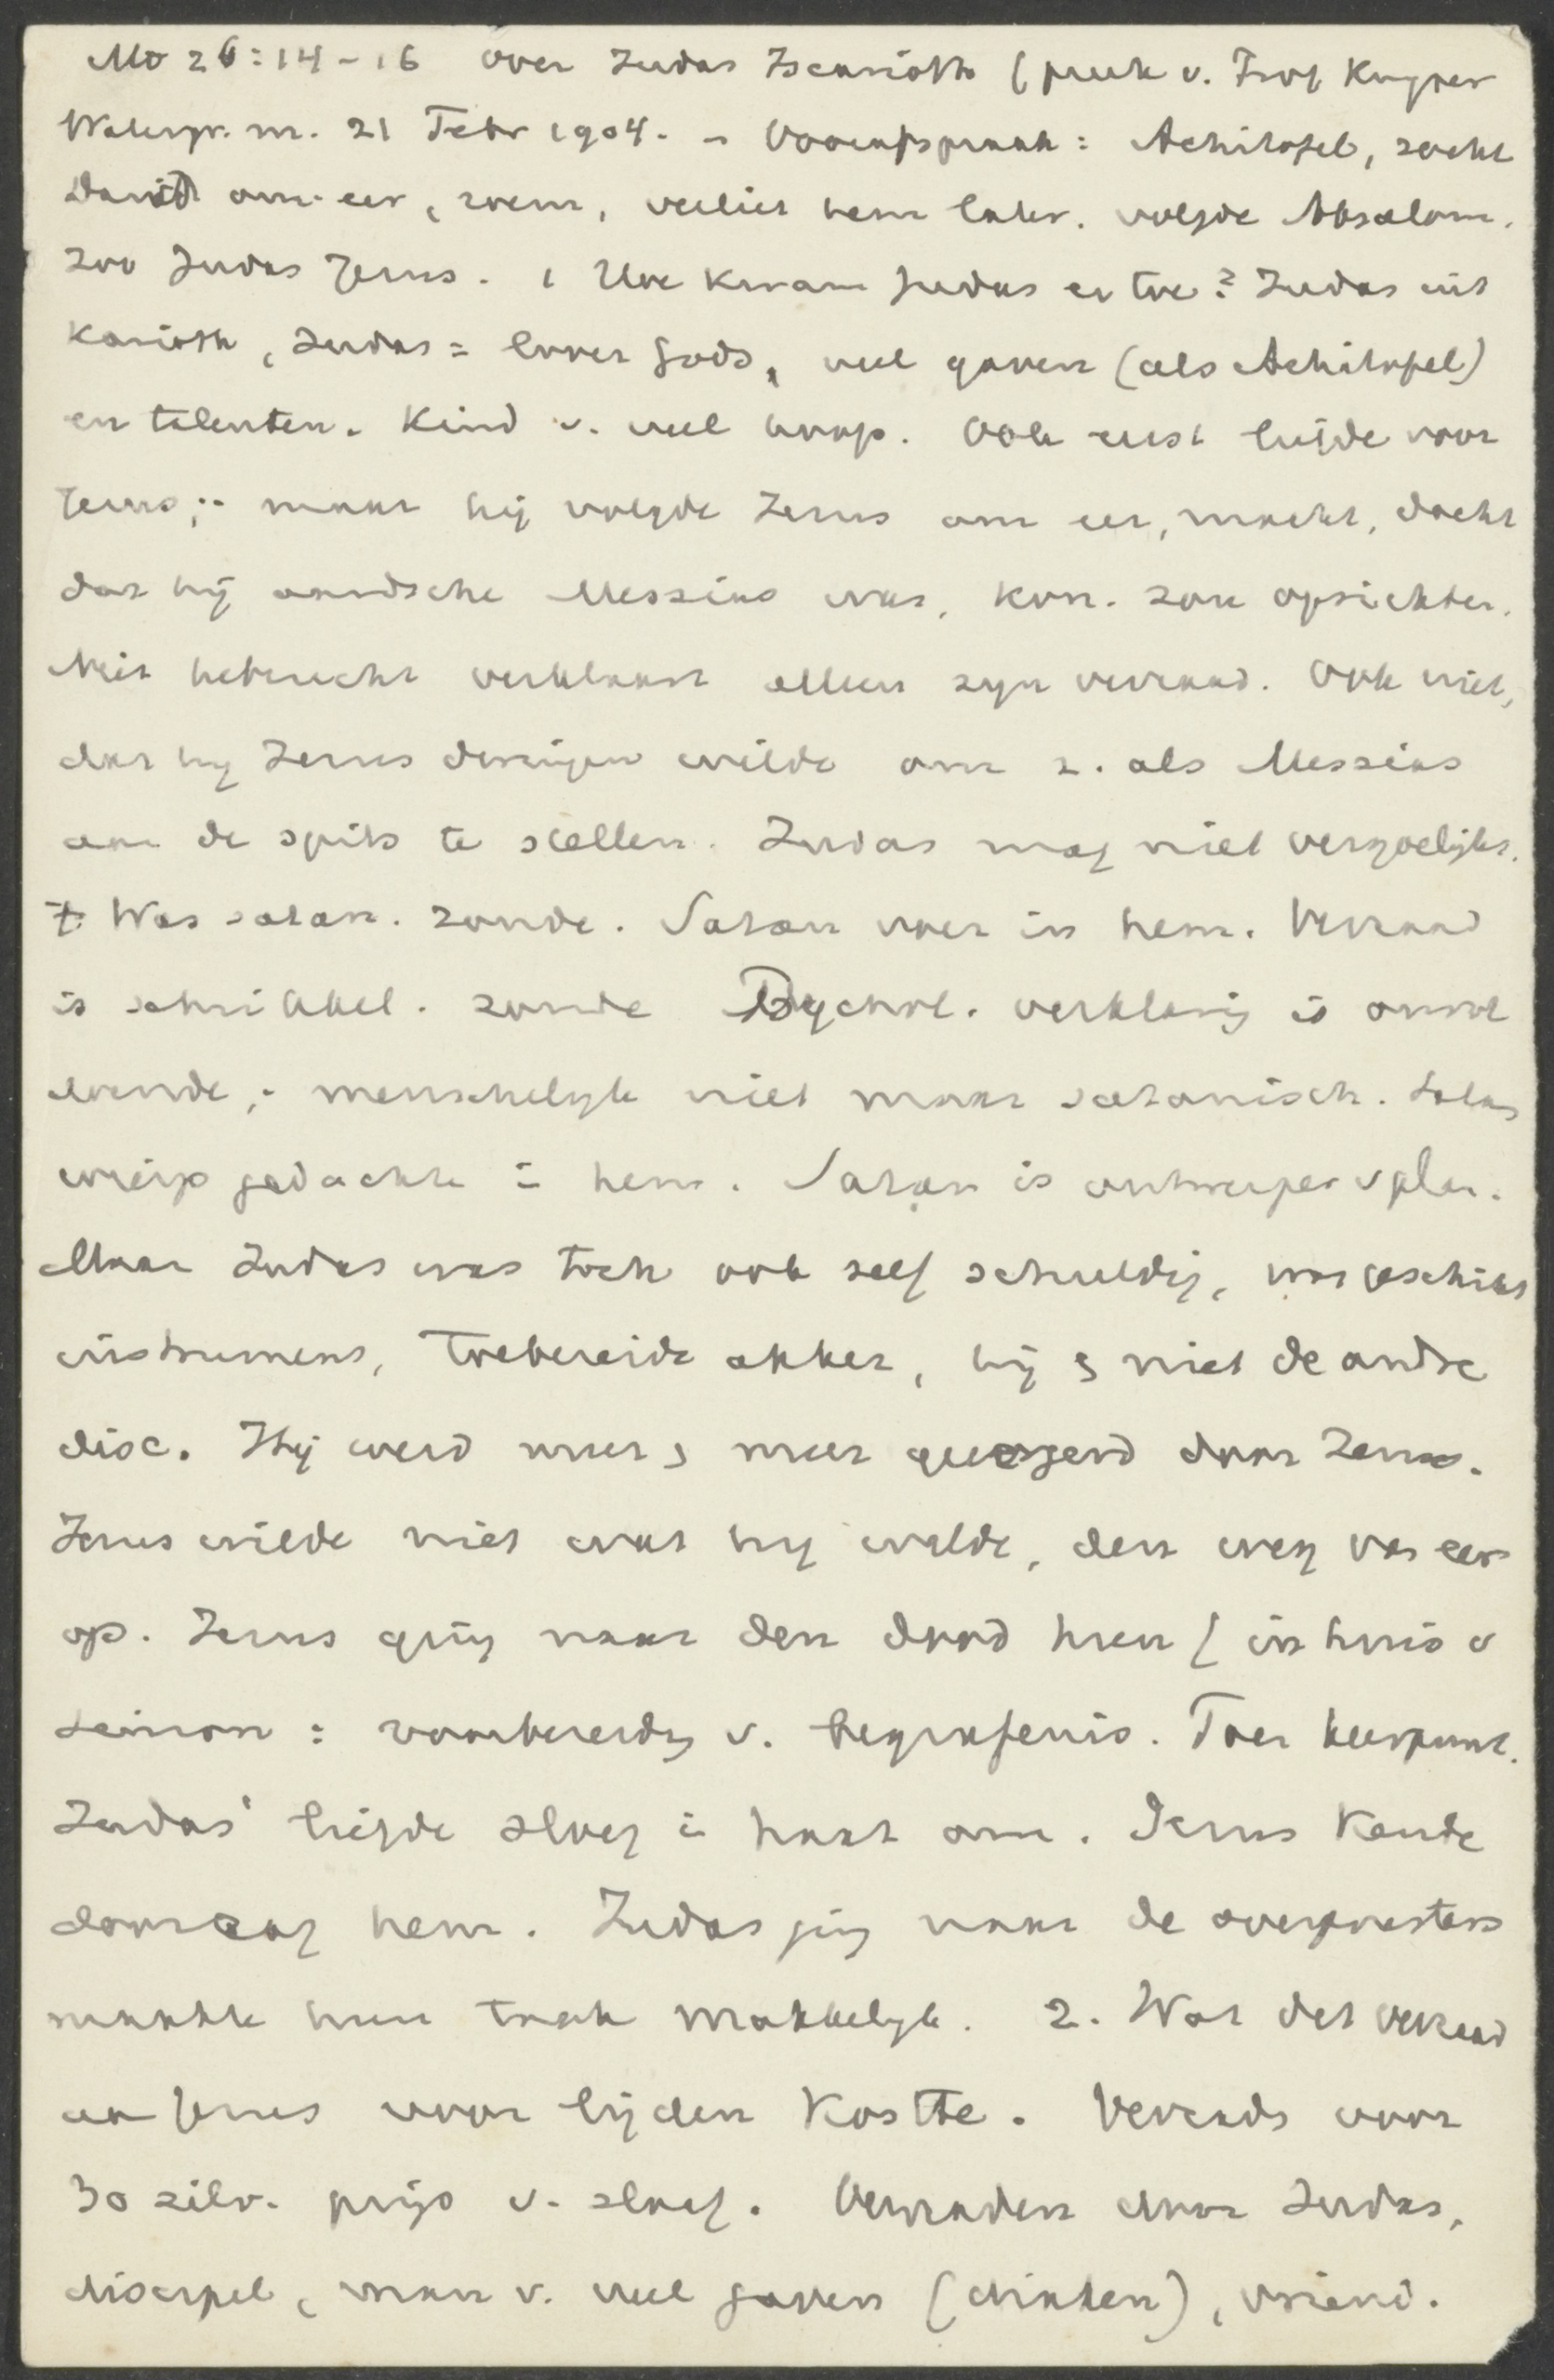 Mt 26:14-16 over Judas Iscarioth (preek v. Prof Kuyper
Walenpr. m. 21 Febr 1904. - Voorafspraak: Achitofel, zocht
David om eer, roem, verliet hem later. volgde Absalom.
Zoo Judas Jezus. 1 Hoe kwam Judas er toe? Judas uit
Karioth, Judas = lover Gods, veel gaven (als Achitofel)
en talenten. Kind v. veel hoop. Ook eerst liefde voor
Jezus;- maar hij volgde Jezus om eer, macht, dacht
dat hij aardsche Messias was, kon. zou oprichten.
Niet hebzucht verklaart alleen zyn verraad. Ook niet,
dat hy Jezus dwingen wilde om z. als Messias
aan de spits te stellen. Judas mag niet vergoelijkt.
't Was satan. zonde. Satan voer in hem. Verraad
is schrikkel. zonde Psychol. verklaring is onvol
doende;- menschelyk niet maar satanisch. Satan
wierp gedachte in hem. Satan is ontwerper v plan.
Maar Judas was toch ook zelf schuldig, was geschikt
instrument, toebereide akker, hij & niet de andre
disc. Hij werd meer & meer geergerd door Jezus.
Jezus wilde niet wat hy wilde, den weg van eer
op. Jezus ging naar den dood heen (in huis v
Simon: voorbereidg v. begrafenis. Toen keerpunt.
Judas' liefde sloeg in haat om. Jezus kende
doorzag hem. Judas ging naar de overpriesters
maakte hun taak makkelyk. 2. Wat dat verraad
aan Jezus voor lijden kostte. Verrads voor
30 zilv. prijs v. slaaf. Verraden door Judas,
discipel, man v. veel gaven (dichten), vriend.